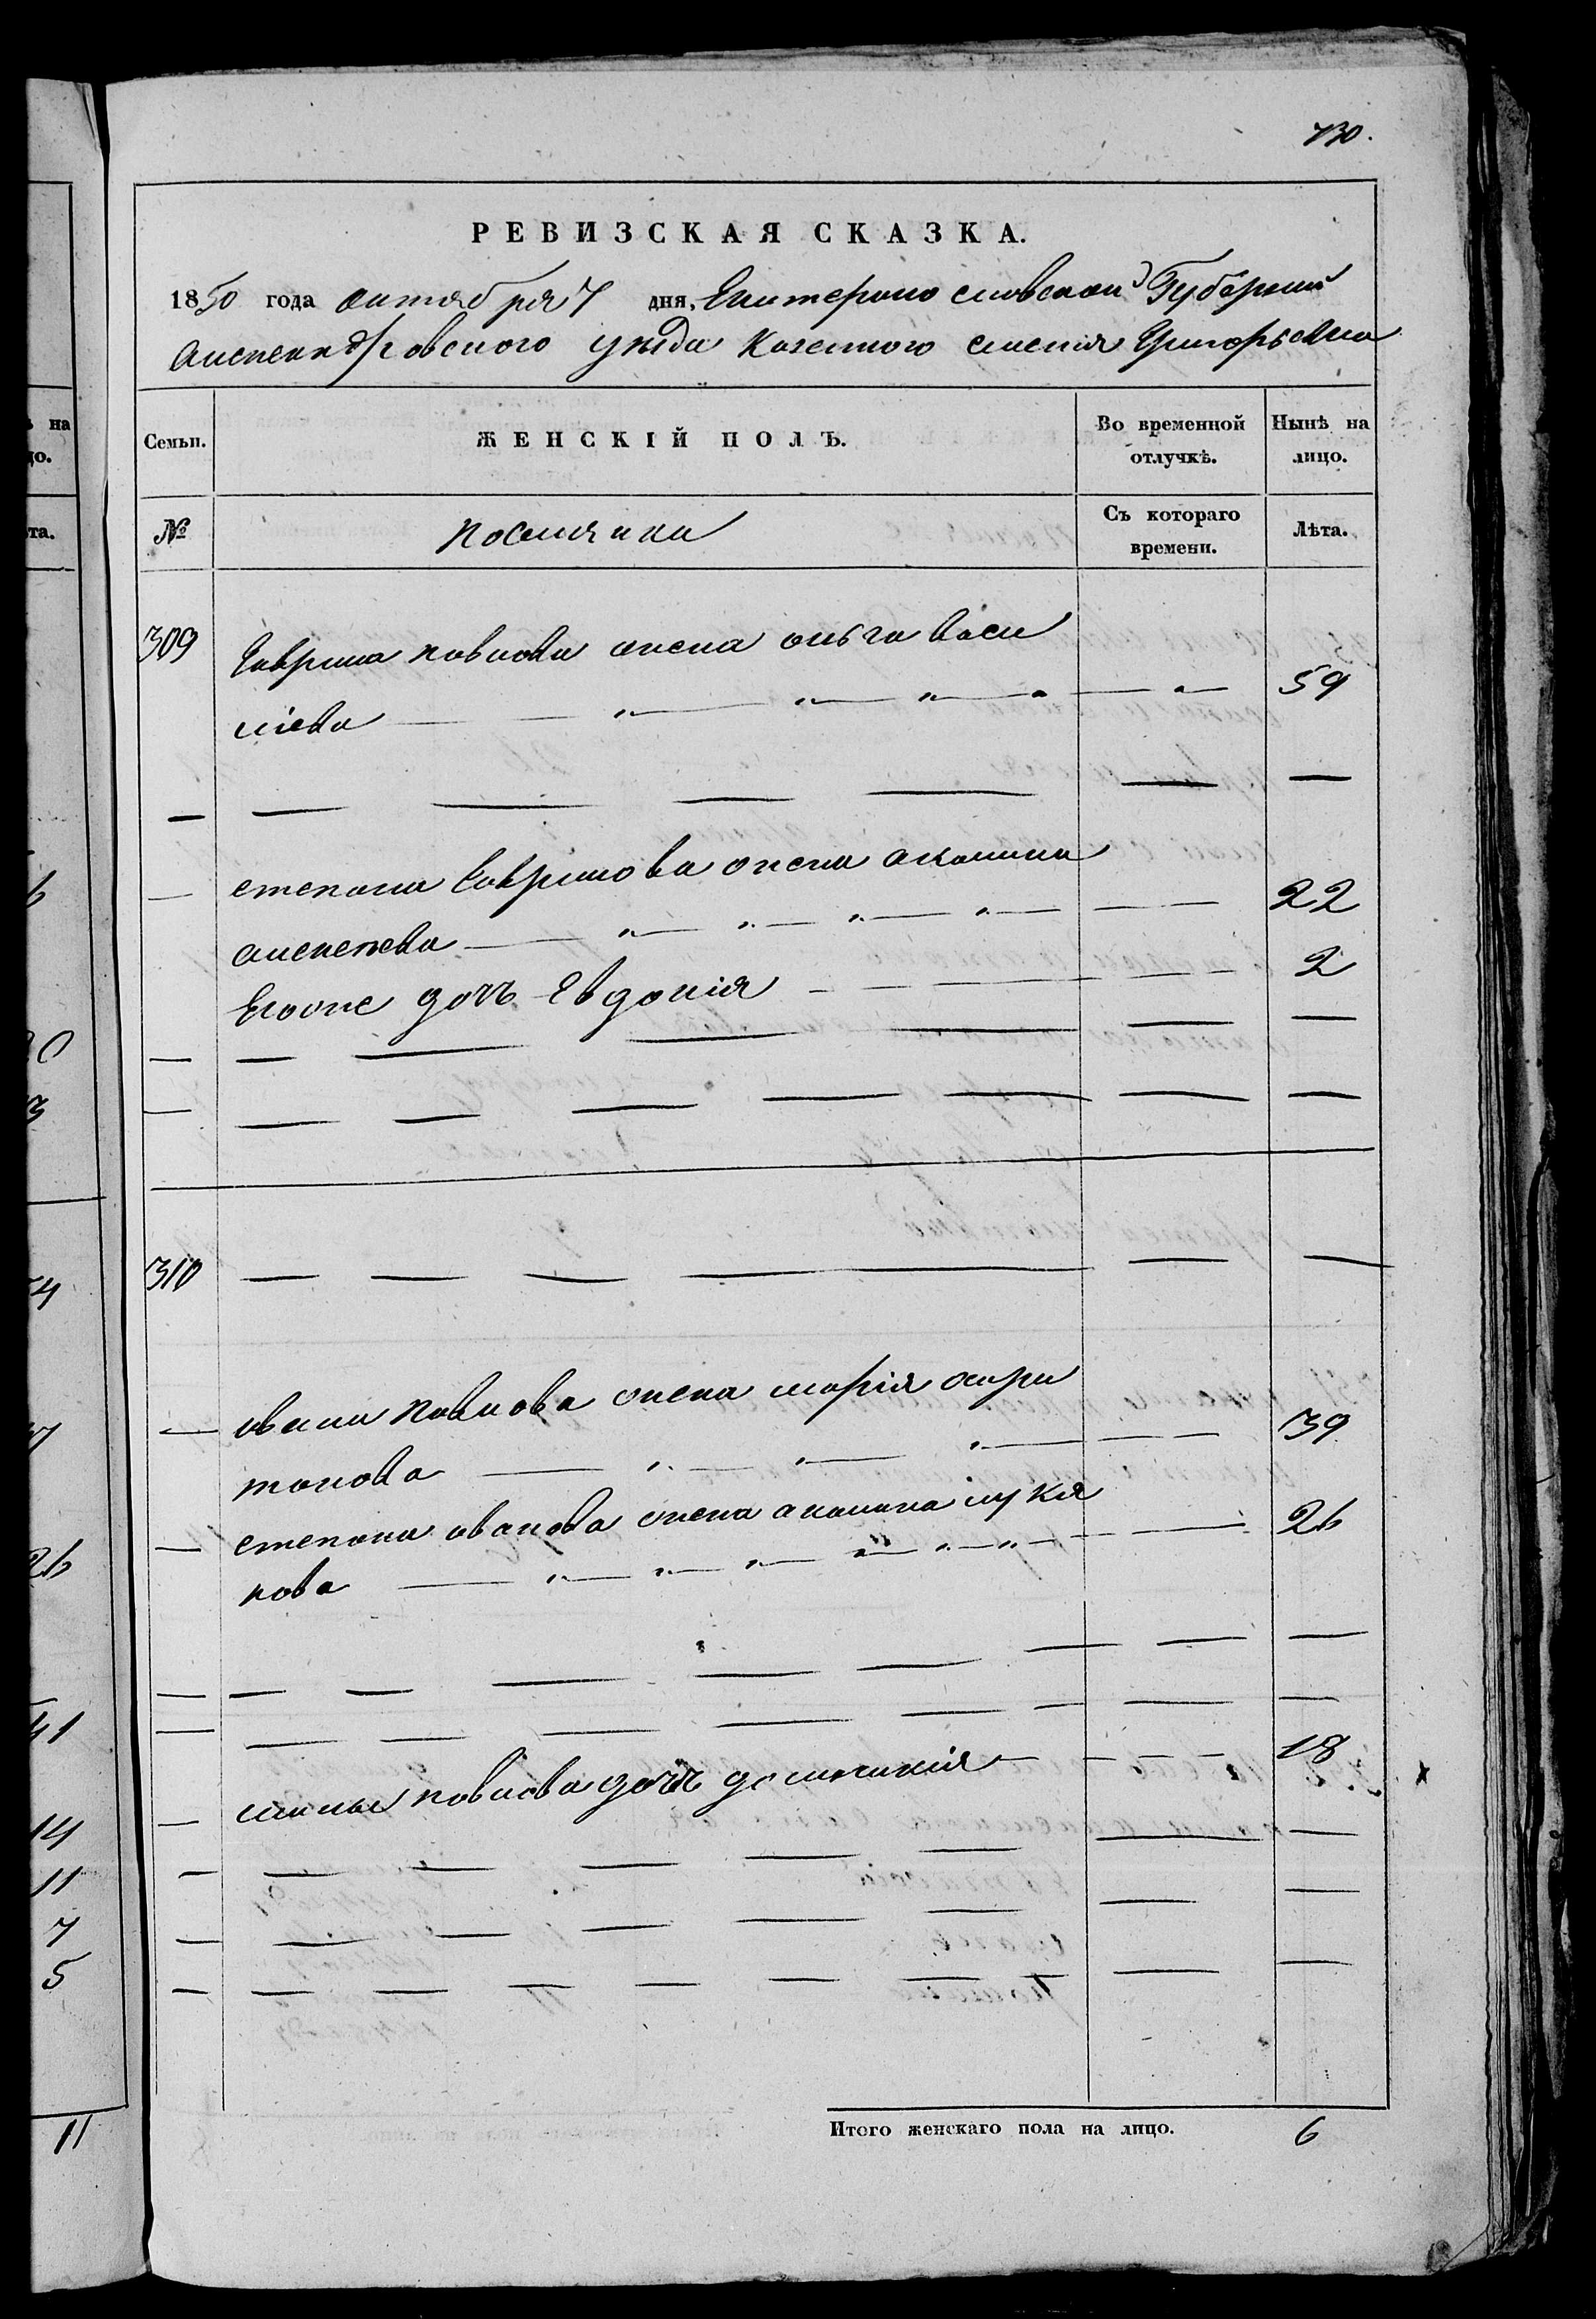 730.
РЕВИЗСКАЯ СКАЗКА.
1850 года октября 7 дня, Екатерино славской Губерний
Александровского уезда Казенного селенія Григорьевка
Семьи.
ЖЕНСКІЙ ПОЛЪ.
Во временной отлучкѣ.
Нынѣ на лицо.
№
Съ котораго времени.
Лѣта.
309
Гаврила павлова жена ольга Васи
лиева 59
степана Гаврилова жена акилина
алексеева 22
Егоже дочь Евдокія 2
310
ивана павлова жена марія хари
тонова 39
степана иванова жена акилина лукя
нова 26
павлова дочь 18
Итого женскаго пола на лицо. 6
на
та.
26
41
14
11
7
5
11